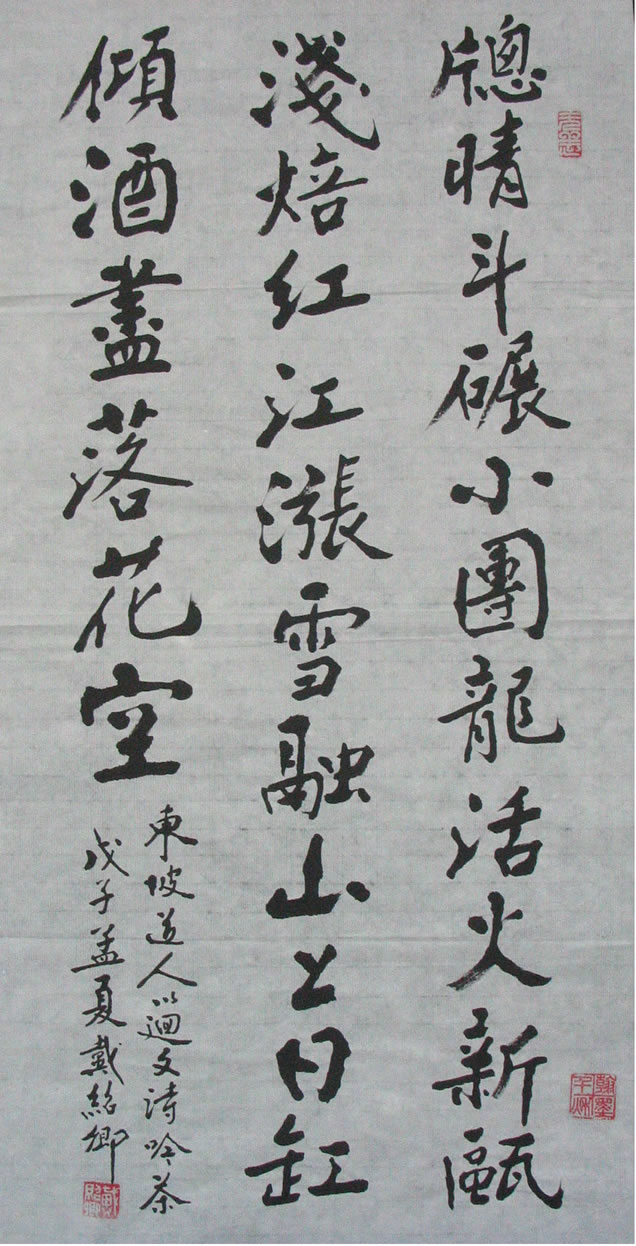 牕晴斗碾小團龍活火新甌
淺焙紅江漲雪融山上日缸
傾酒盡落花空
東坡道人以迴文詩吟茶
戊子孟夏戴紹卿
翰墨千秋